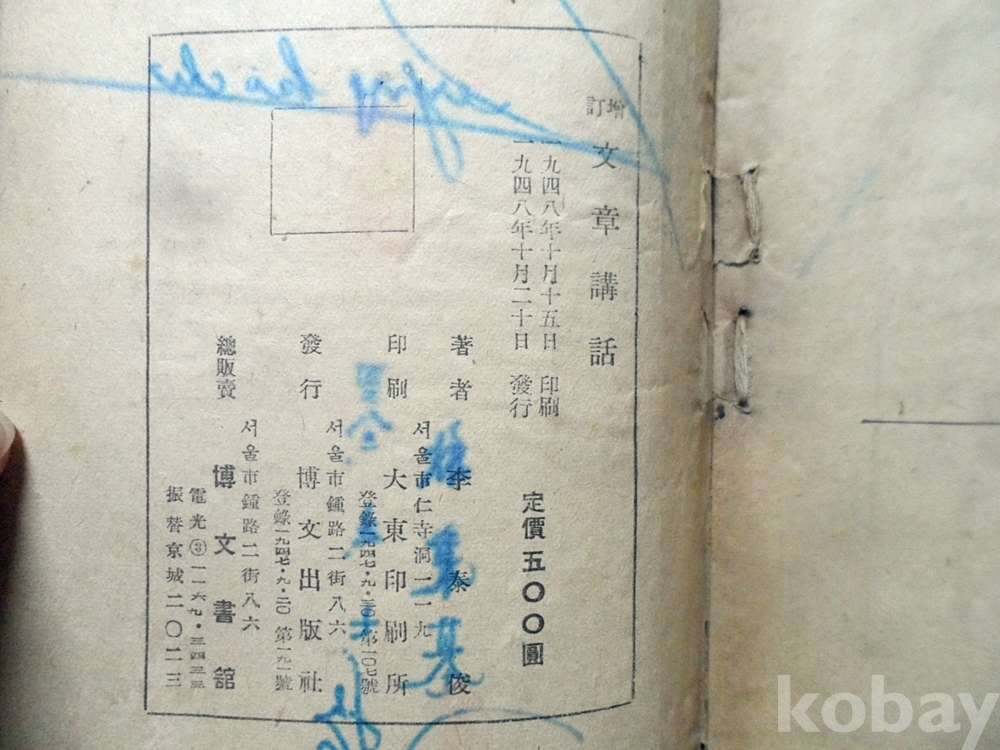 增訂
文章講話
一九四八年十月十五日 印刷
一九四八年十月二十日 發行
定價五〇〇圓
著者 李泰俊
서울市仁寺洞一一九
印刷 大東印刷所
登錄一九四七・九・二〇 第一〇七號
서울市鍾路二街八六
發行 博文出版社
登錄一九四七・九・二〇 第一九一號
서울市鍾路二街八六
總販賣 博文書舘
電光③一一六九・三四三三
振替京城二〇二三
kobay